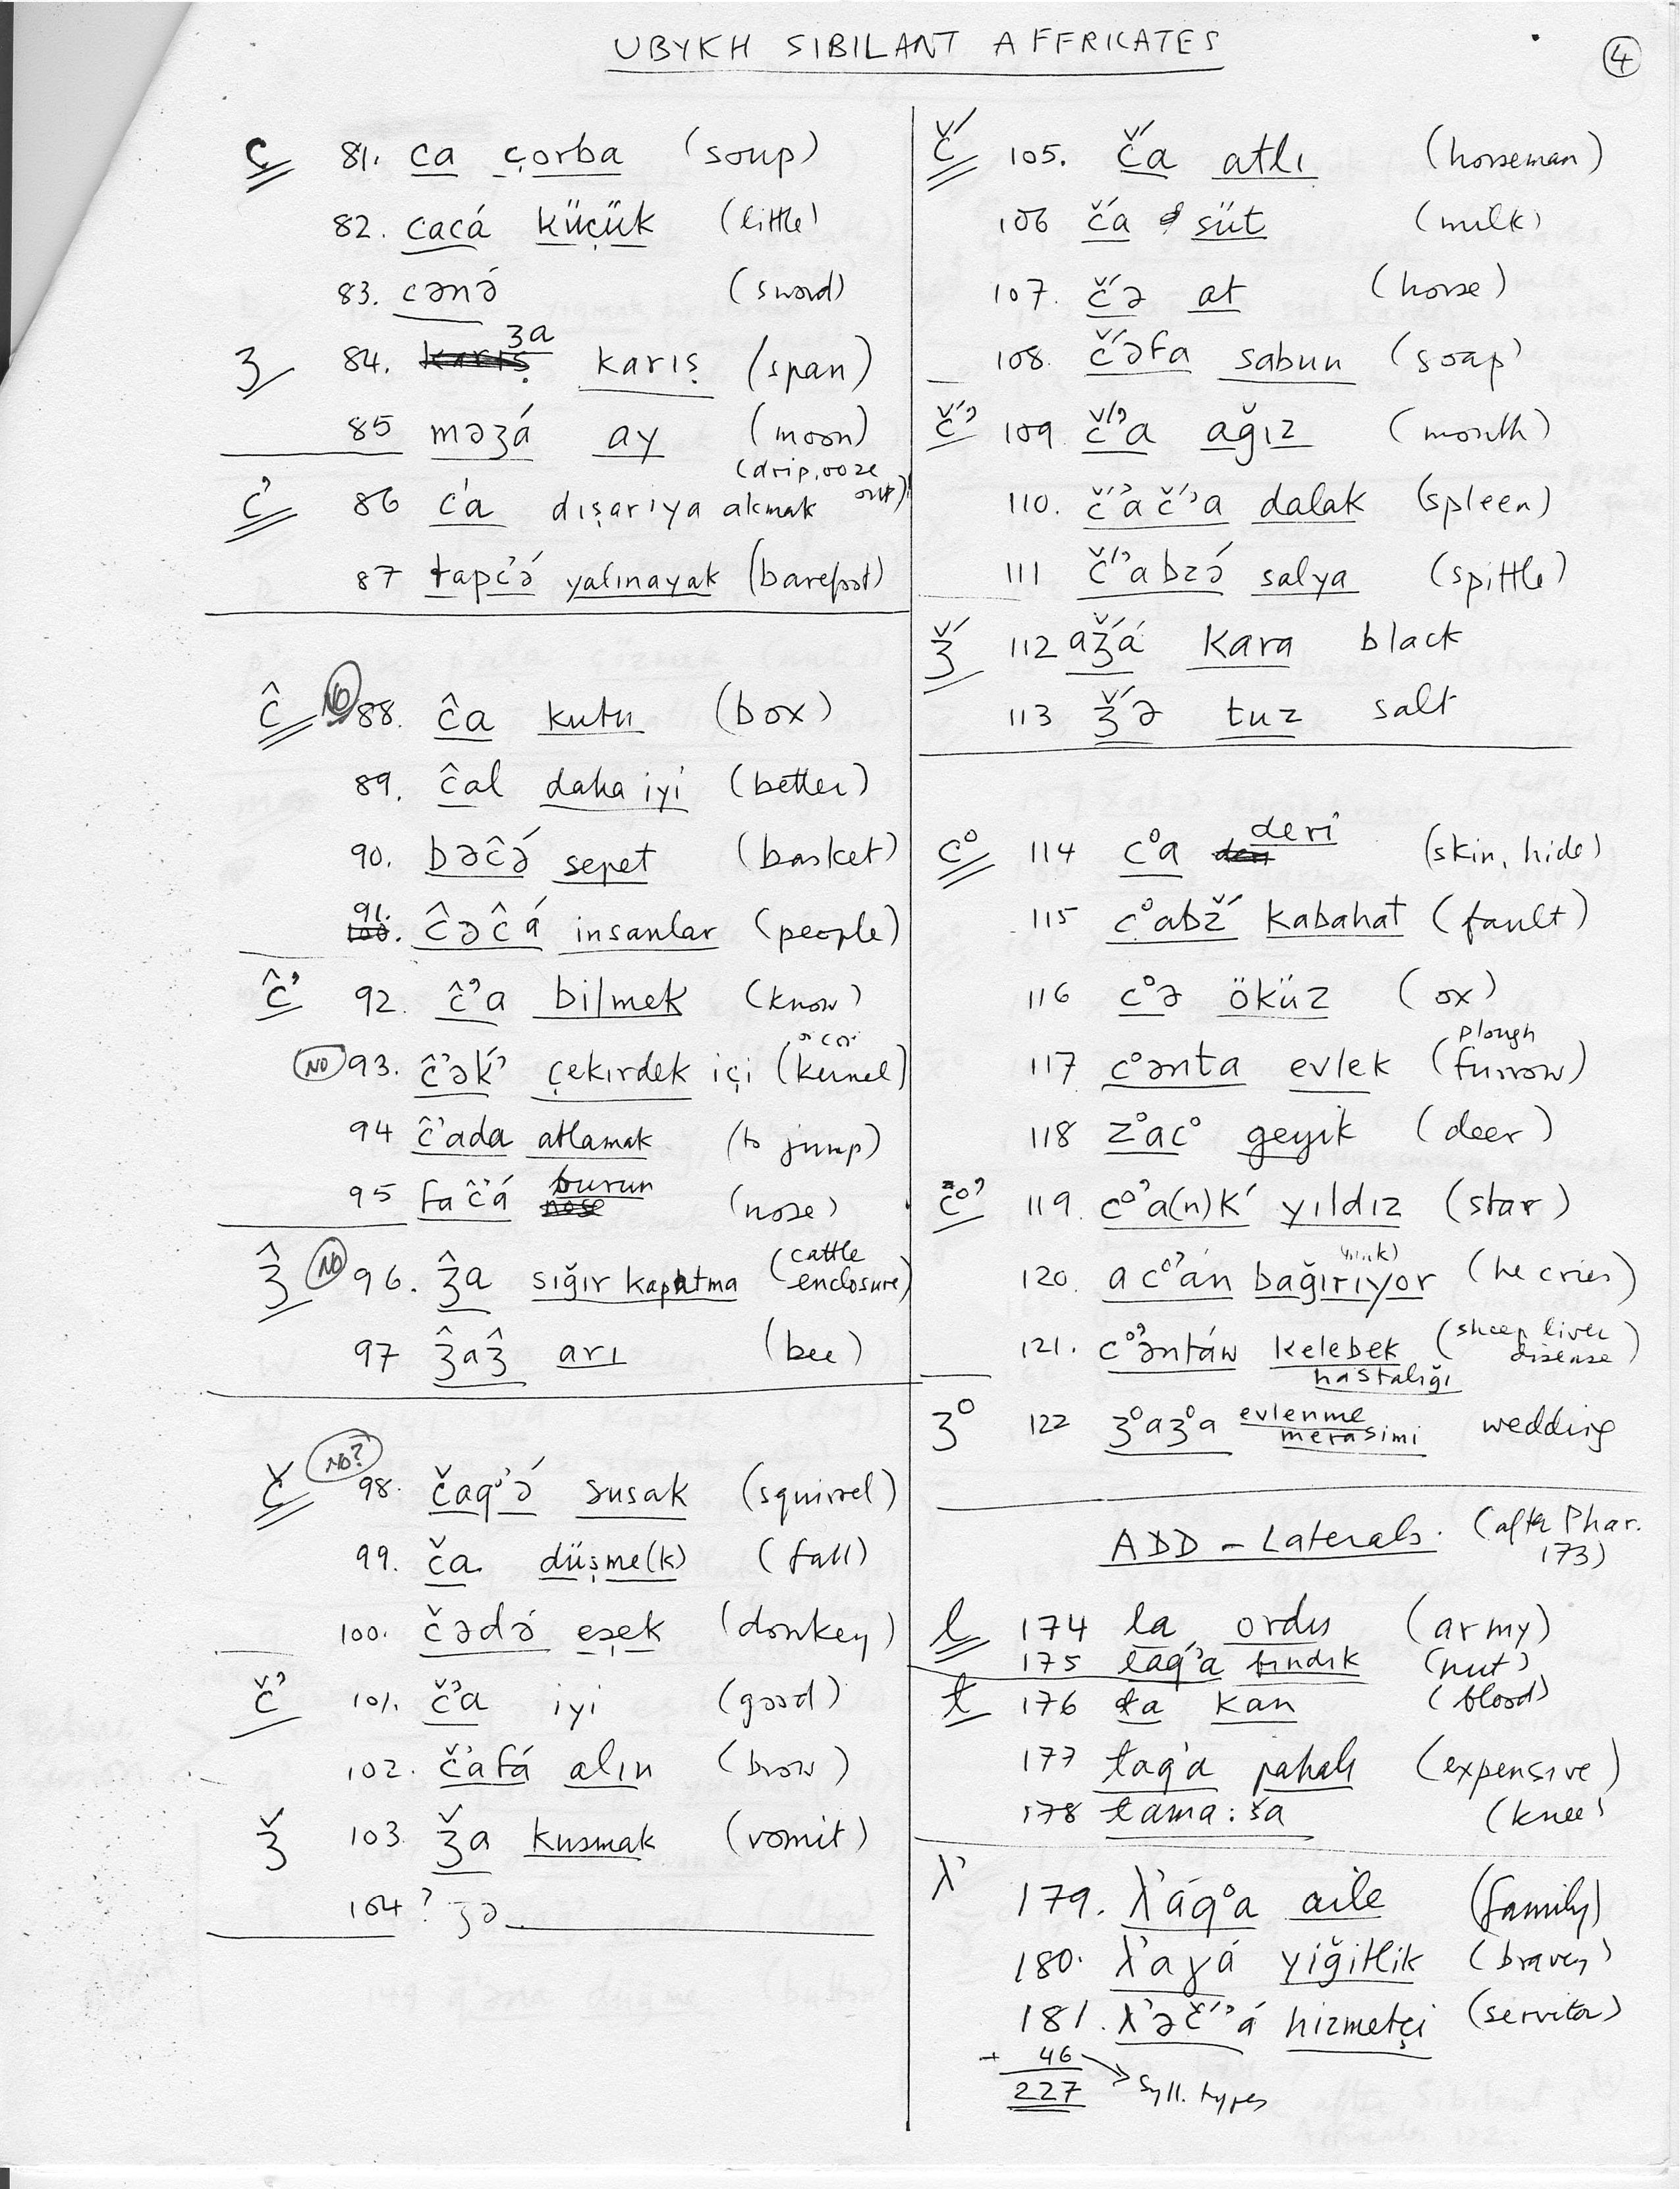 UBYKH SIBILANT AFFRICATES
4
c 81. ca çorba (soup)
82. cacá küçük (little)
83. cǝnǝ́ (sword)
ʒ 84. karış ʒa karış (span)
85 mǝʒá ay (moon)
c’ 86 c’a dışarıya akmak (drip, ooze out)
87 tapc’ǝ́ yalınayak (barefoot)
ĉ NO 88. ĉa kutu (box)
89. ĉal daha iyi (better)
90. bǝĉǝ́ sepet (basket)
91. 100. ĉǝĉá insanlar (people)
ĉ’ 92. ĉ’a bilmek (know)
NO 93. ĉ’ǝḱ’ çekırdek içi (kernel)
94 ĉ’ada atlamak (to jump)
95 faĉ’á burun nose (nose)
ʒ̂ NO 96. ʒ̂a sığır kapatma (cattle enclosure)
97 ʒ̂aʒ̂ arı (bee)
č NO? 98. čaq’ǝ́ susak (squirrel)
99. ča düşme(k) (fall)
100. čǝdǝ́ eşek (donkey)
č’ 101. č’a iyi (good)
102. č’afá alın (brow)
ǯ 103. ǯa kusmak (vomit)
104? ʒǝ
č́ 105. č́a atlı (horseman)
106 č́a süt (milk)
107. č́ǝ at (horse)
108. č́ǝfa sabun (soap)
č́’ 109 č́’a ağız (mouth)
110. č́’ač́’a dalak (spleen)
111 č́’abzǝ́ salya (spittle)
ǯ́ 112 aǯ́á kara black
113 ǯ́ǝ tuz salt
c° 114 c°a deri (skin, hide)
115 c°abž́ kabahat (fault)
116 c°ǝ öküz (ox)
117 c°ǝnta evlek (plough furrow)
118 z°ac° geyik (deer)
c°’ 119. c°’a(n)ḱ yıldız (star)
120. ac°’án bağırıyor (he cries)
121. c°’ǝntáw kelebek hastalığı (sheep liver disease)
ʒ° 122 ʒ°aʒ°a evlenme merasimi wedding
ADD – Laterals. (after Phar. 173)
l 174 la ordu (army)
175 laq’a fındık (nut)
ɬ 176 ɬa kan (blood)
177 ɬaq’a pahalı (expensive)
178 ɬama:ša (knee)
λ’ 179. λ’áq°a aile (family)
180. λ’aɣá yiğitlik (bravery)
181. λ’ǝč́’á hizmetçi (servitor)
+ 46 → Syll. types
227